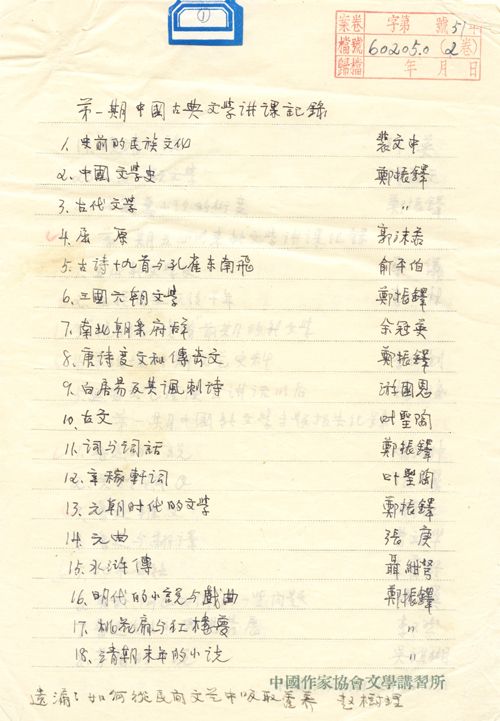 ①
案卷 字第 號 51年
檔號 60205.0 (2卷)
歸檔 年 月 日
第一期中國古典文学讲课記錄
1. 史前的民族文化 裴文中
2. 中國文学史 鄭振鐸
3. 古代文学 〃
4. 屈 原 郭沫若
5. 古詩十九首与孔雀东南飛 俞平伯
6. 三國六朝文学 鄭振鐸
7. 南北朝乐府古辞 余冠英
8. 唐詩变文和傳奇文 鄭振鐸
9. 白居易及其諷刺诗 游國恩
10. 古文 叶聖陶
11. 词与词話 鄭振鐸
12. 辛稼軒词 叶聖陶
13. 元朝时代的文学 鄭振鐸
14. 元曲 張 庚
15. 水浒傳 聶紺弩
16. 明代的小說与戲曲 鄭振鐸
17. 桃花扇与紅樓夢 〃
18. 清朝末年的小说 〃
中國作家協會文學講習所
遗漏：如何從民間文艺中吸取营养 赵樹理